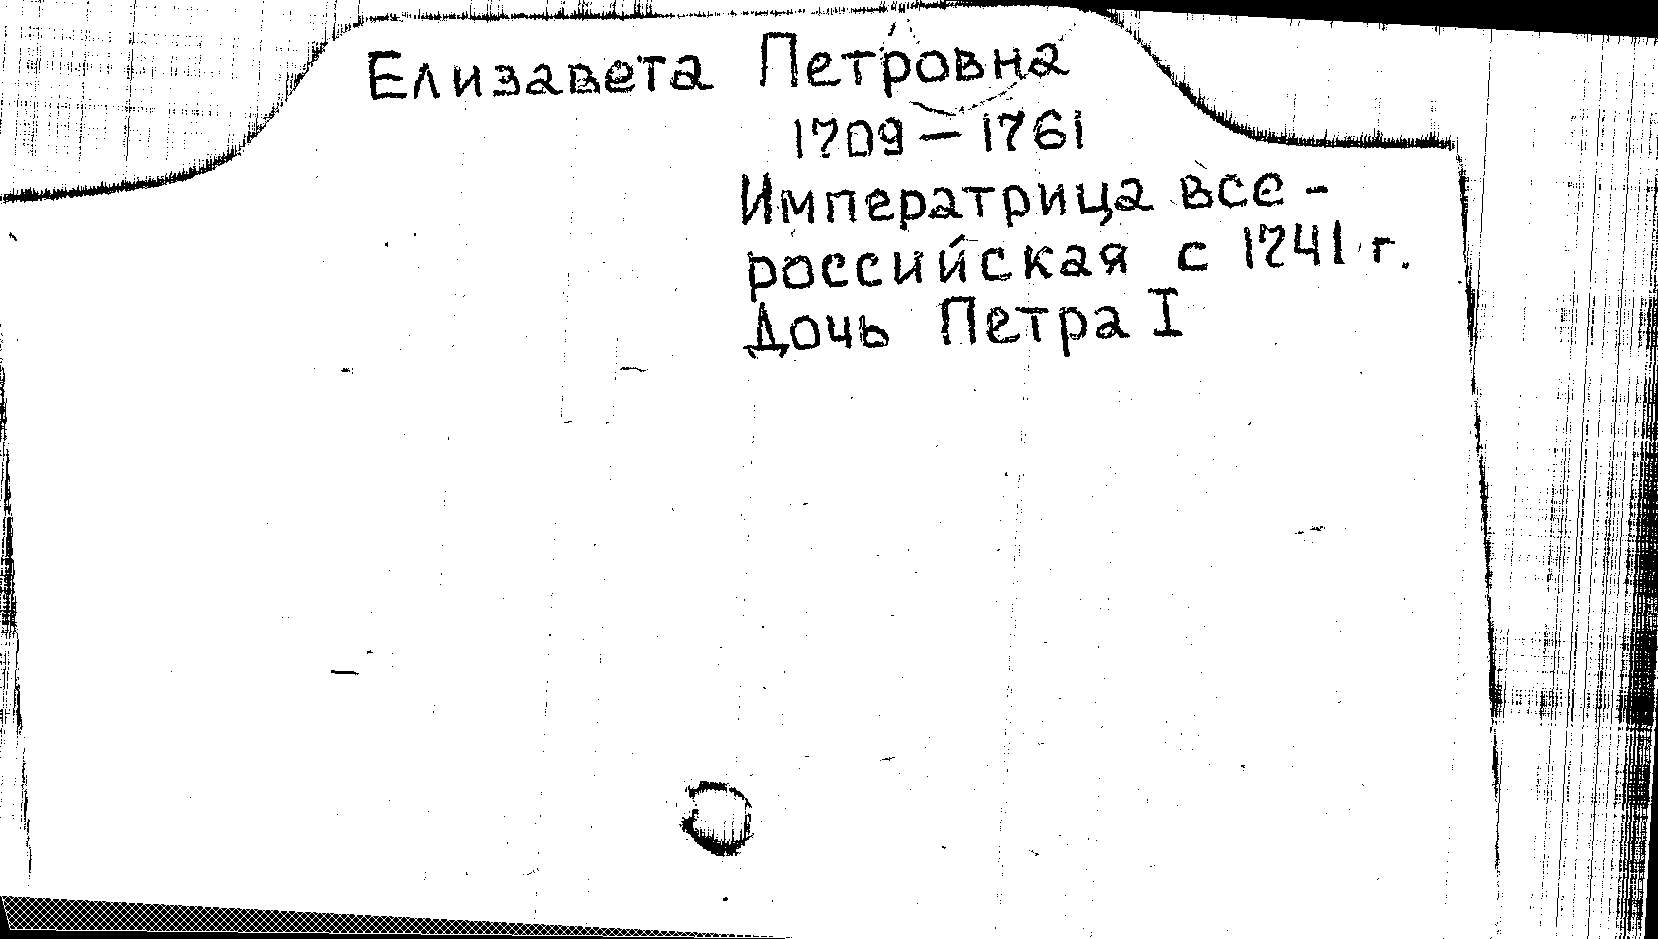 Елизавета Петровна
1709 – 1761
Императрица все-
российская с 1741 г.
Дочь Петра I